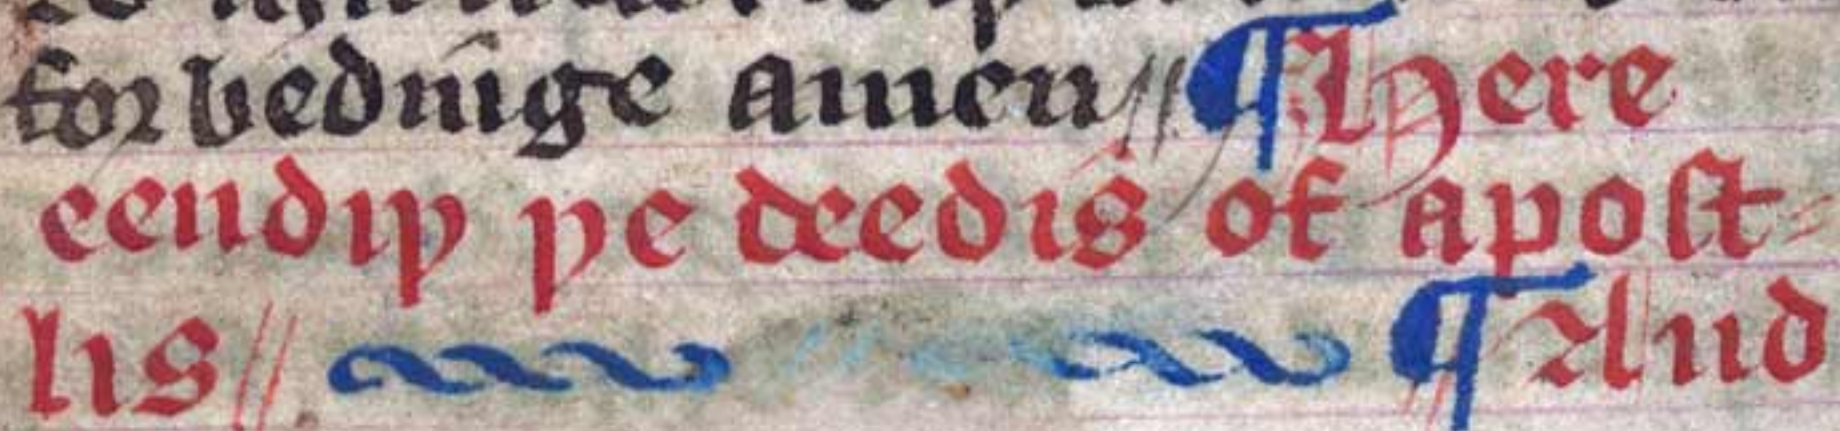 forbedinge amen // ¶ Here
eendiþ þe deedis of apost=
lis // ¶ And